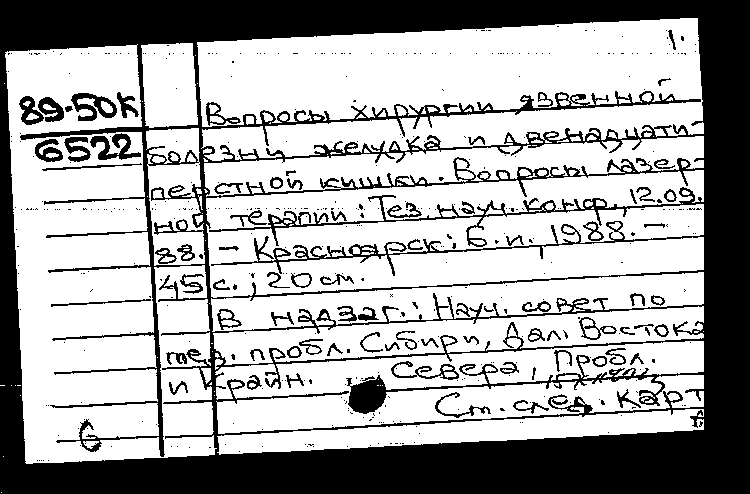 1.
89-50К
6522
Вопросы хирургии язвенной
болезни желудка и двенадцати-
перстной кишки. Вопросы лазер-
ной терапии: Тез. науч. конф., 12.09.
88. – Красноярск: Б.и., 1988. –
45 с.; 20 см.
В надзаг.: Науч. совет по
мед. пробл. Сибири, Дал. Востока
и Крайн. Севера, Пробл.
См. след. карт
6